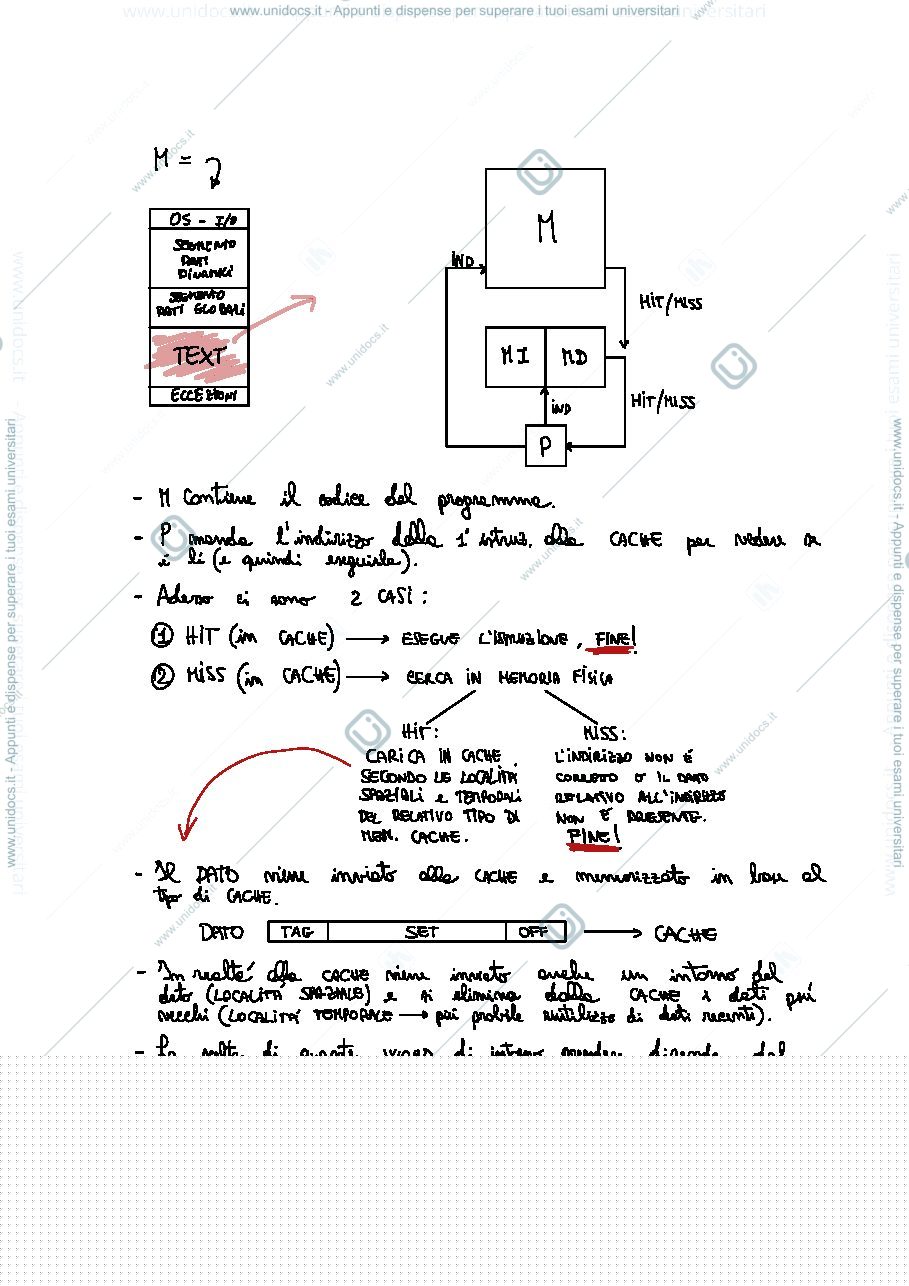 www.unidocs.it - Appunti e dispense per superare i tuoi esami universitari
M =
OS - I/O
SEGMENTO
DATI
DINAMICI
SEGMENTO
DATI GLOBALI
TEXT
ECCEZIONI
M
IND
HIT/MISS
MI MD
HIT/MISS
IND
P
- M contiene il codice del programma.
- P manda l'indirizzo della 1° istruz. alla CACHE per vedere se
è lì (e quindi eseguirla).
- Adesso ci sono 2 CASI:
① HIT (in CACHE) → ESEGUE L'ISTRUZIONE, FINE!
② MISS (in CACHE) → CERCA IN MEMORIA FISICA
HIT:
CARICA IN CACHE
SECONDO LE LOCALITÀ
SPAZIALI e TEMPORALI
DEL RELATIVO TIPO DI
MEM. CACHE.
MISS:
L'INDIRIZZO NON È
CORRETTO O IL DATO
RELATIVO ALL'INDIRIZZO
NON È PRESENTE.
FINE!
- Il DATO viene inviato alla CACHE e memorizzato in base al
tipo di CACHE.
DATO TAG SET OFF → CACHE
- In realtà alla CACHE viene inviato anche un intorno del
dato (LOCALITÀ SPAZIALE) e si elimina dalla CACHE i dati più
vecchi (LOCALITÀ TEMPORALE → più probile riutilizzo di dati recenti).
- La scelta di quante WORD di intorno prendere dipende dal
www.unidocs.it - Appunti e dispense per superare i tuoi esami universitari
www.unidocs.it - Appunti e dispense per superare i tuoi esami universitari